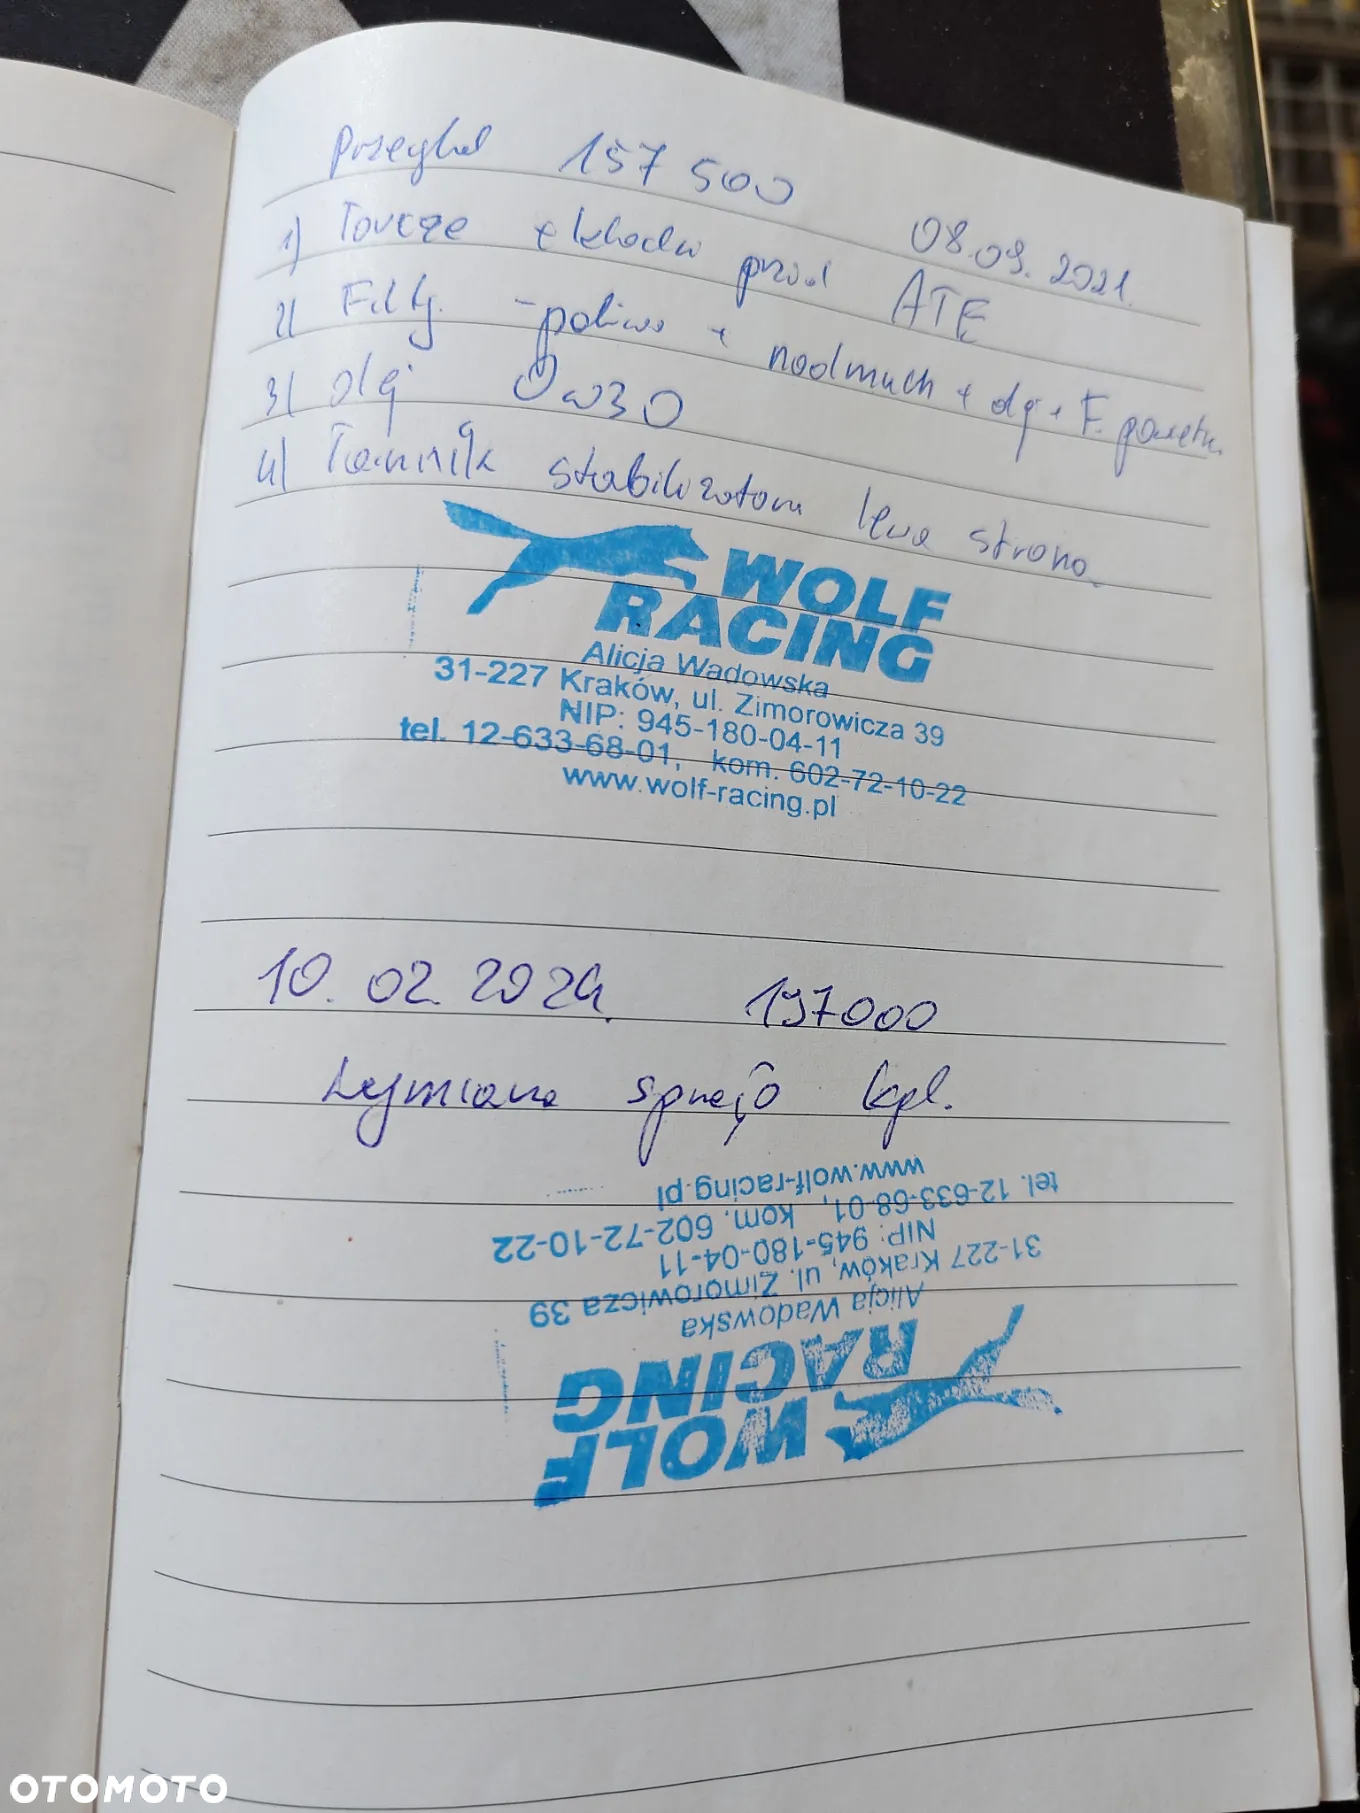 Przegląd 157 500 08.09.2021.
1) Tarcze + klocki przód ATE
2) Filtry - paliwa + nadmuch + olej + F. powietrza
3) olej 0w30
4) Łącznik stabilizatora lewa strona.
WOLF
RACING
Alicja Wadowska
31-227 Kraków, ul. Zimorowicza 39
NIP: 945-180-04-11
tel. 12-633-68-01, kom. 602-72-10-22
www.wolf-racing.pl
10.02.2024. 197000
Wymiana sprzęgło kpl.
WOLF
RACING
Alicja Wadowska
31-227 Kraków, ul. Zimorowicza 39
NIP: 945-180-04-11
tel. 12-633-68-01, kom. 602-72-10-22
www.wolf-racing.pl
OTOMOTO